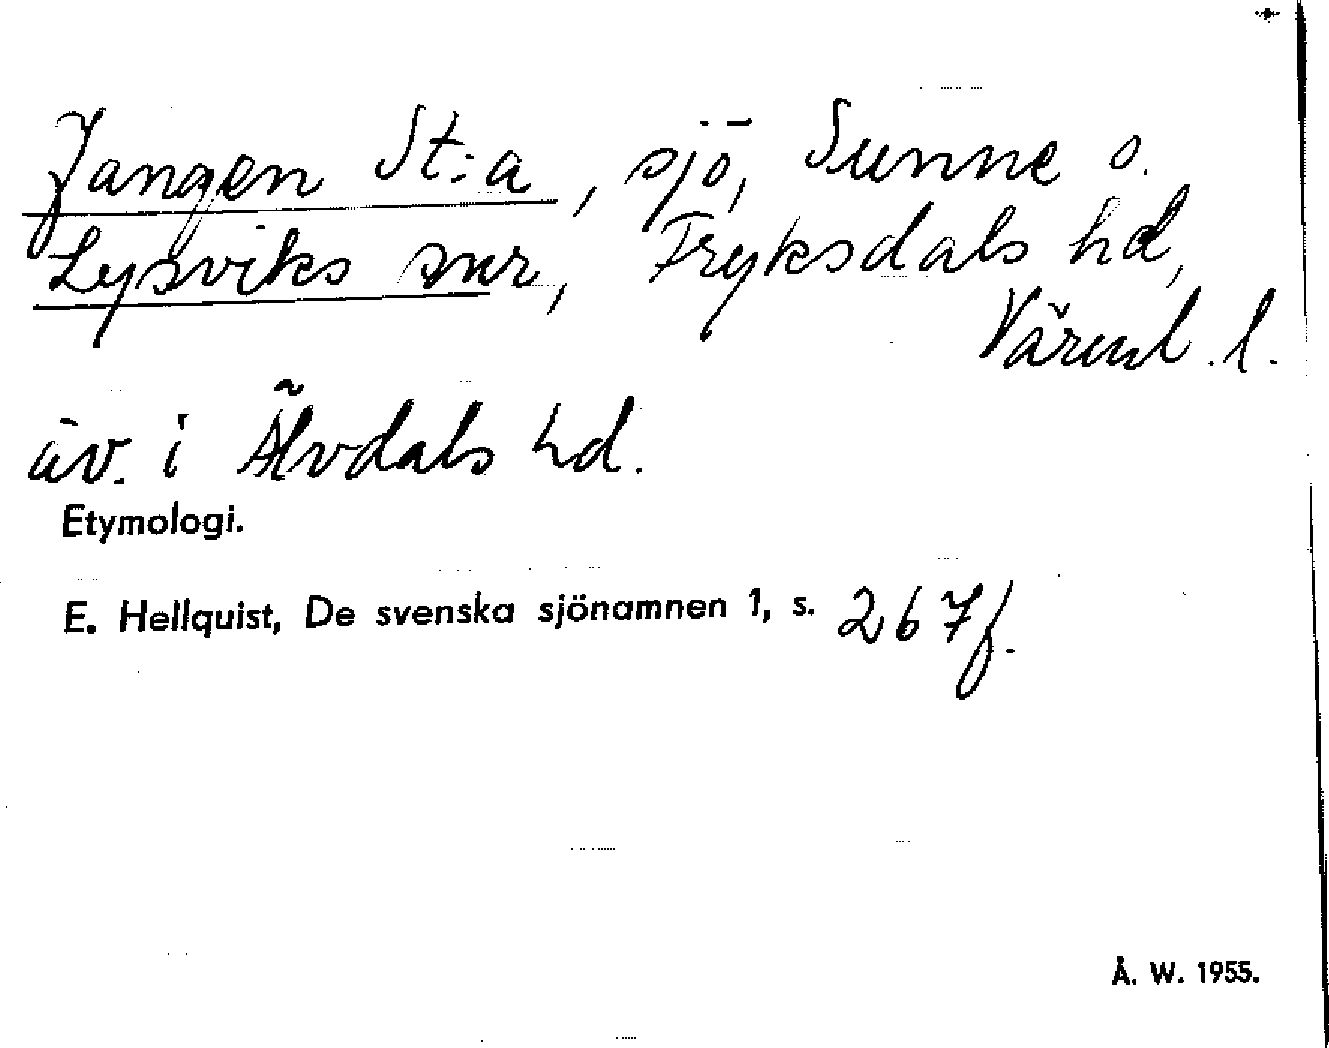 Jangen St:a, sjö, Sunne o.
Lysviks snr, Fryksdals hd,
Värml. l.
äv. i Älvdals hd.
Etymologi.
E. Hellquist, De svenska sjönamnen 1, s. 267f.
Å. W. 1955.